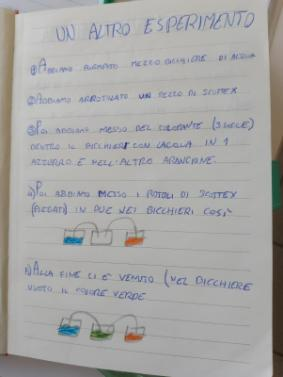 UN ALTRO ESPERIMENTO
ABBIAMO RIEMPITO MEZZO BICCHIERE DI ACQUA
ABBIAMO ARROTOLATO UN PEZZO DI SCOTTEX
POI ABBIAMO MESSO DEL COLORANTE (3 GOCCE)
DENTRO IL BICCHIERE CON L'ACQUA IN 1
AZZURRO E NELL'ALTRO ARANCIONE.
POI ABBIAMO MESSO I ROTOLI DI SCOTTEX
(PIEGATI) IN DUE NEI BICCHIERI COSÌ
ALLA FINE CI È VENUTO (NEL BICCHIERE
VUOTO IL COLORE VERDE